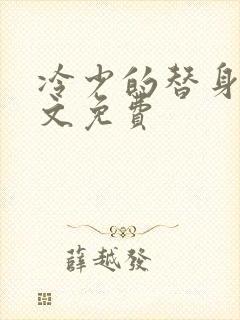 冷少的替身
文免费
薛越發